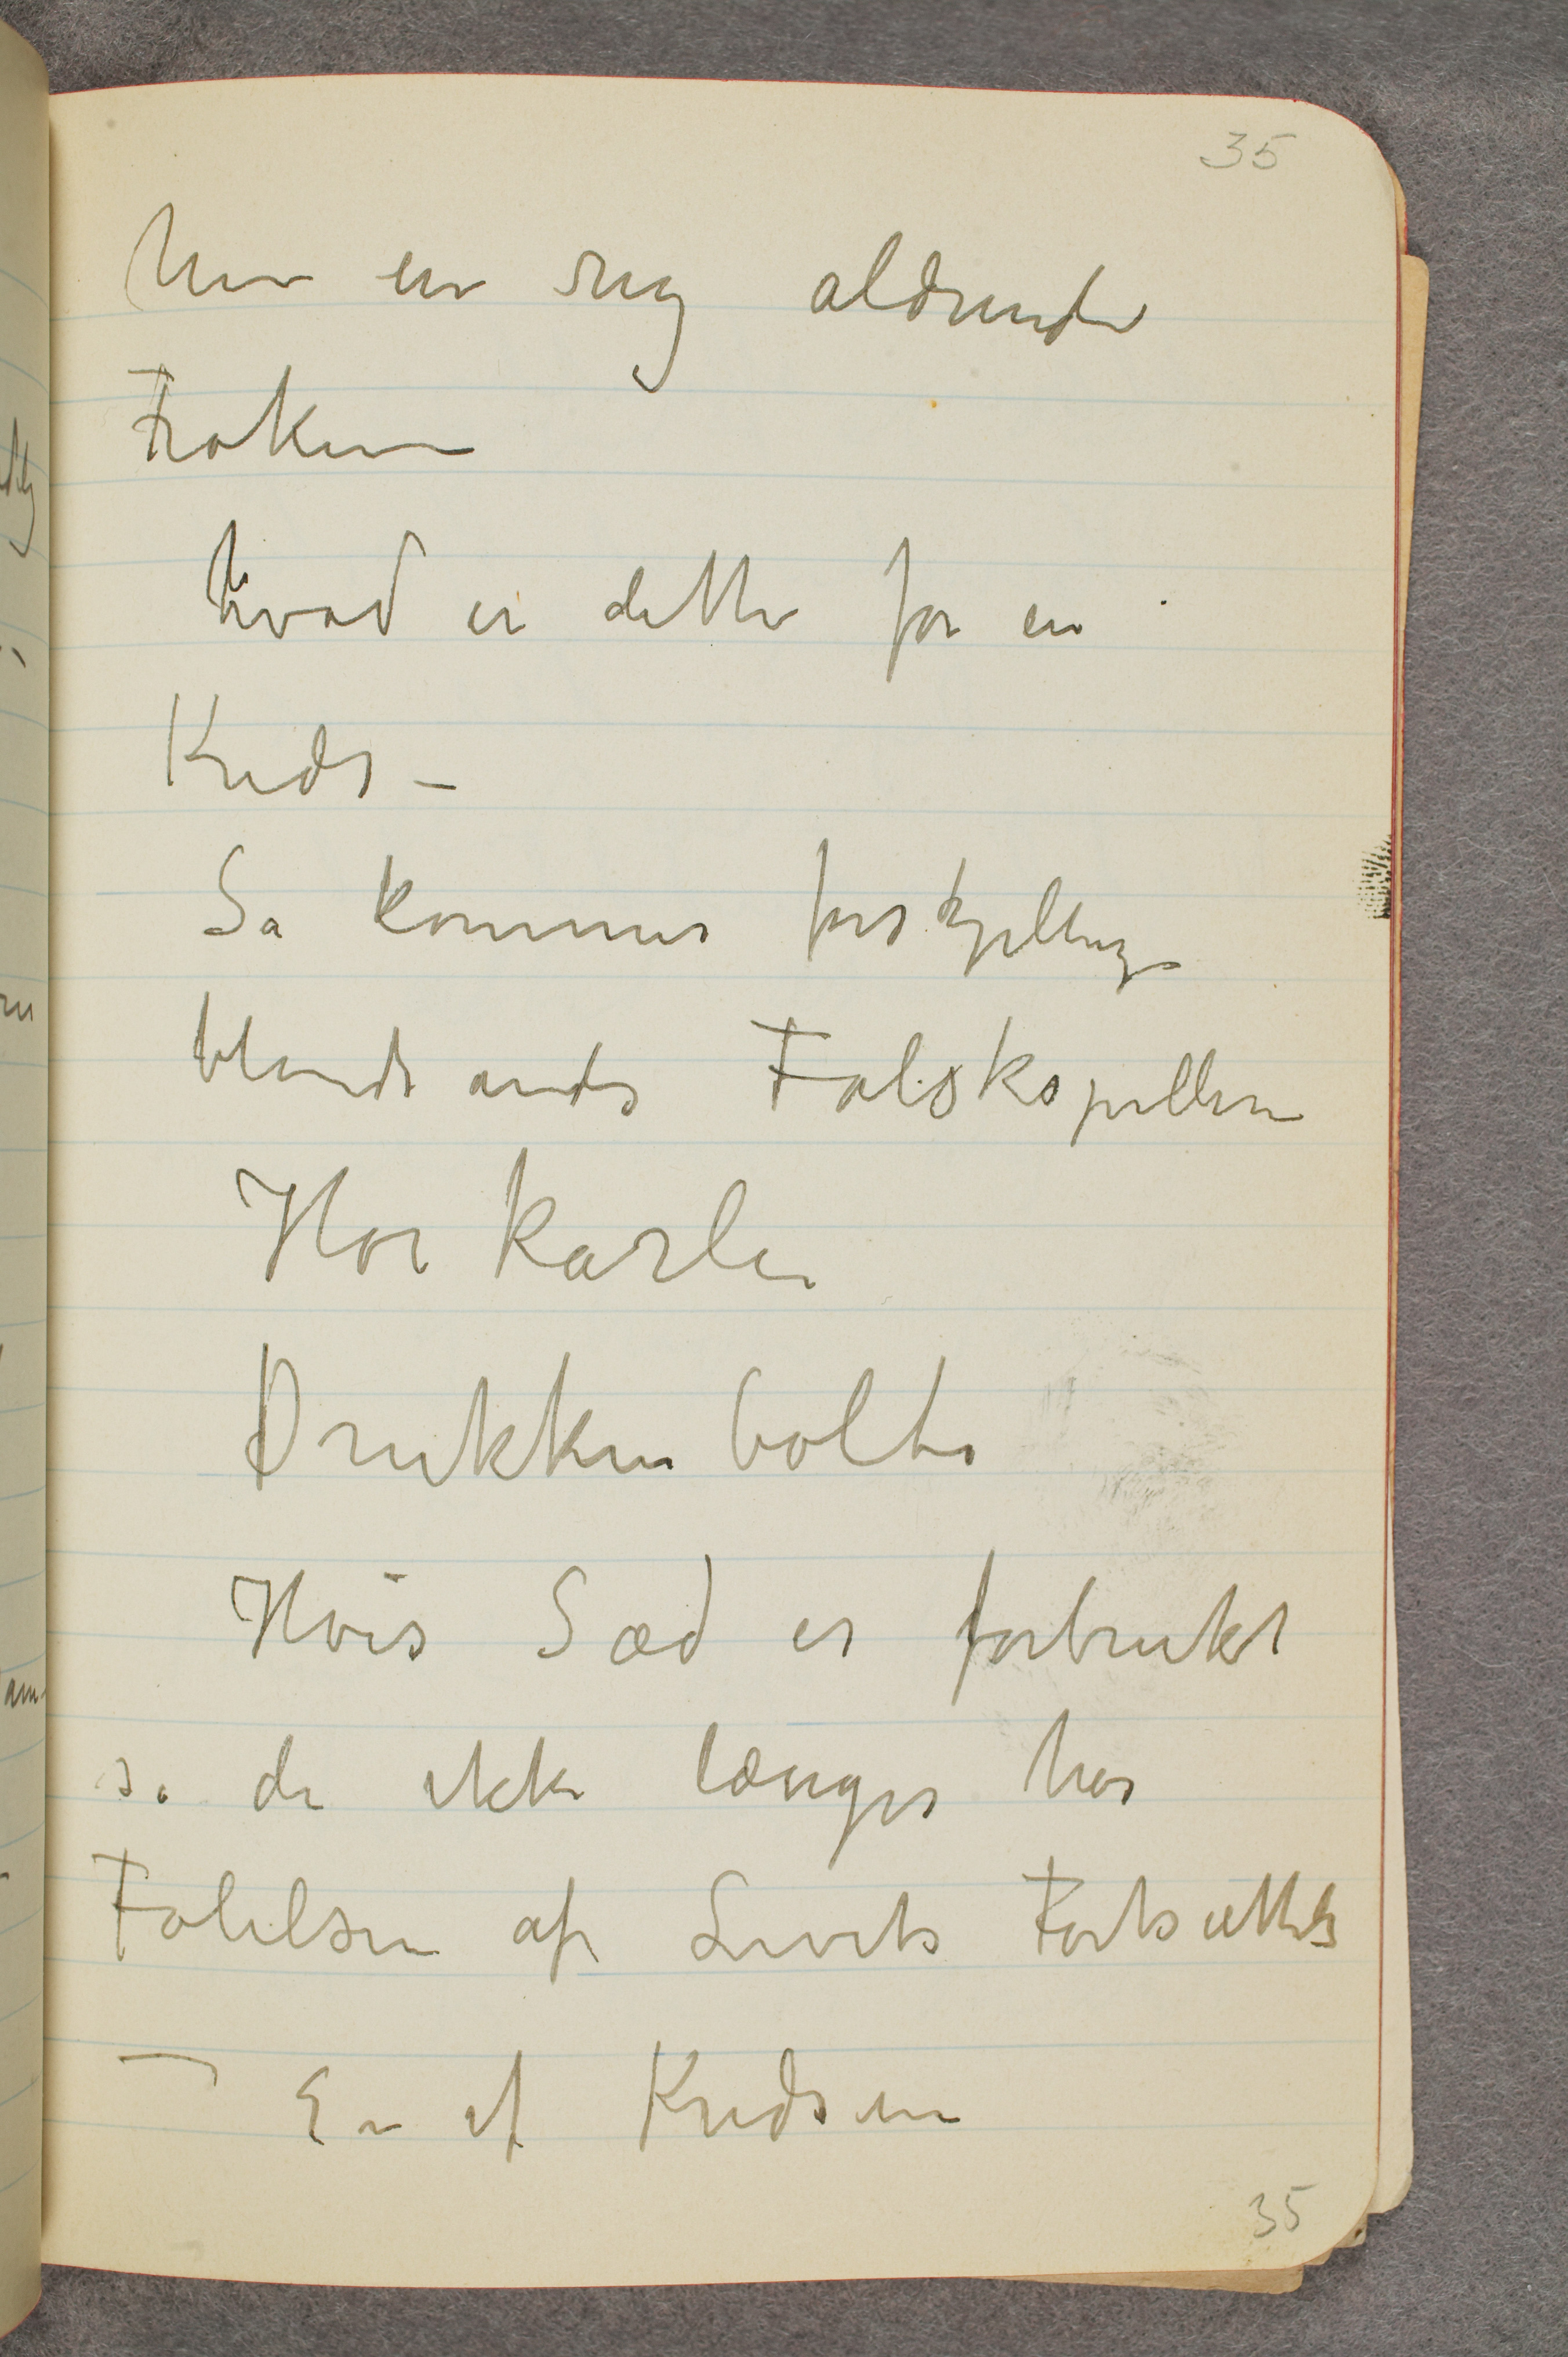 35
hun en rig aldrende
Frøken
hvad er dette for en
Kreds –
Så kommer forskjellige
blandt andet Falskspillere
Horkarle
Drukkenbolte
Hvis Sæd er forbrukt
så de ikke længer har
Følelsen af Livets Fortsættelse
– En af Kredsen
35